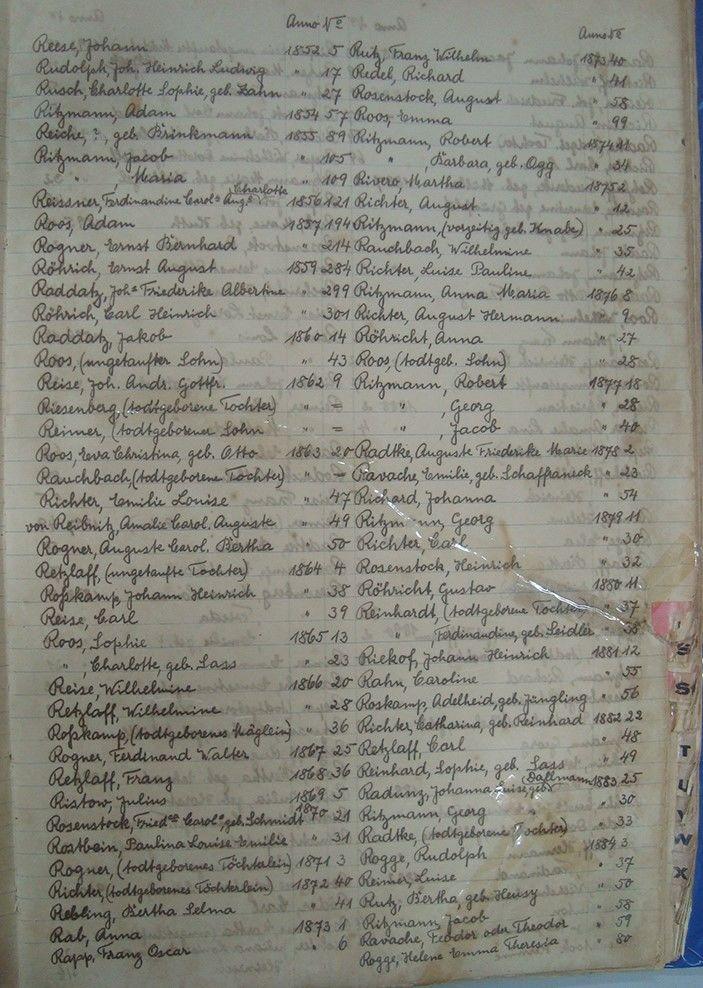 Anno No
Reese, Johann 1852 5
Rudolph, Joh. Heinrich Ludwig " 17
Rusch, Charlotte Sophie, geb. Zann " 27
Ritzmann, Adam 1854 57
Reiche, ?, geb. Brinkmann 1855 89
Ritzmann, Jacob " 105
" , Maria " 109
Reissner, Ferdinandine Carol. Aug. Charlotte 1856 121
Roos, Adam 1857 194
Rogner, Ernst Bernhard " 214
Röhrich, Ernst August 1859 284
Raddatz, Joh. Friederike Albertine " 299
Röhrich, Carl Heinrich " 301
Raddatz, Jakob 1860 14
Roos, (ungetaufter Sohn) " 43
Reise, Joh. Andr. Gottfr. 1862 9
Riesenberg, (todtgeborene Tochter) " =
Reimer, (todtgeborener Sohn " =
Roos, Eva Christina, geb. Otto 1863 20
Rauchbach, (todtgeborene Tochter) " =
Richter, Emilie Louise " 47
von Reibnitz, Amalie Carol. Auguste " 49
Rogner, Auguste Carol. Bertha " 50
Retzlaff, (ungetaufte Tochter) 1864 4
Roßkamp, Johann Heinrich " 38
Reise, Carl " 39
Roos, Sophie 1865 13
" , Charlotte, geb. Lass " 23
Reise, Wilhelmine 1866 20
Retzlaff, Wilhelmine " 28
Roßkamp, (todtgeborenes Mäglein) " 36
Rogner, Ferdinand Walter 1867 25
Retzlaff, Franz 1868 36
Ristow, Julius 1869 5
Rosenstock, Fried. Carol., geb. Schmidt 1870 21
Rostbein, Paulina Louise Emilie " 31
Rogner, (todtgeborenes Töchtelein) 1871 3
Richter, (todtgeborenes Töchterlein) 1872 40
Rebling, Bertha Selma " 41
Rab, Anna 1873 1
Rapp, Franz Oscar " 6
Anno No
Rutz, Franz Wilhelm 1873 40
Redel, Richard " 41
Rosenstock, August " 58
Roos, Emma " 99
Ritzmann, Robert 1874
" , Barbara, geb. Ogg " 34
Rivero, Martha 1875 2
Richter, August " 12
Ritzmann, (vorzeitig geb. Knabe) " 25
Rauchbach, Wilhelmine " 35
Richter, Luise Pauline " 42
Ritzmann, Anna Maria 1876 8
Richter, August Hermann " 9
Röhricht, Anna " 27
Roos, (todtgeb. Sohn) " 28
Ritzmann, Robert 1877 18
" , Georg " 28
" , Jacob " 40
Radtke, Auguste Friederike Marie 1878 2
Ravache, Emilie, geb. Schaffraneck " 23
Richard, Johanna " 54
Ritzmann, Georg 1879 11
Richter, Carl " 30
Rosenstock, Heinrich " 32
Röhricht, Gustav 1880 11
Reinhardt, (todtgeborene Tochter) " 37
" , Ferdinandine, geb. Seidler " 38
Riekof, Johann Heinrich 1881 12
Rahn, Caroline " 55
Roskamp, Adelheid, geb. Jüngling " 56
Richter, Catharina, geb. Reinhard 1882 22
Retzlaff, Carl " 48
Reinhard, Sophie, geb. Lass " 49
Radunz, Johanna Luise geb. Dallmann 1883 25
Ritzmann, Georg " 30
Radtke, (todtgeborene Tochter) " 33
Rogge, Rudolph 1884 3
Reimer, Luise " 37
Rutz, Bertha, geb. Heusy " 50
Ritzmann, Jacob " 58
Ravache, Feodor oder Theodor " 59
Rogge, Helene Emma Theresia " 80
S
S
T
U
V
W
X